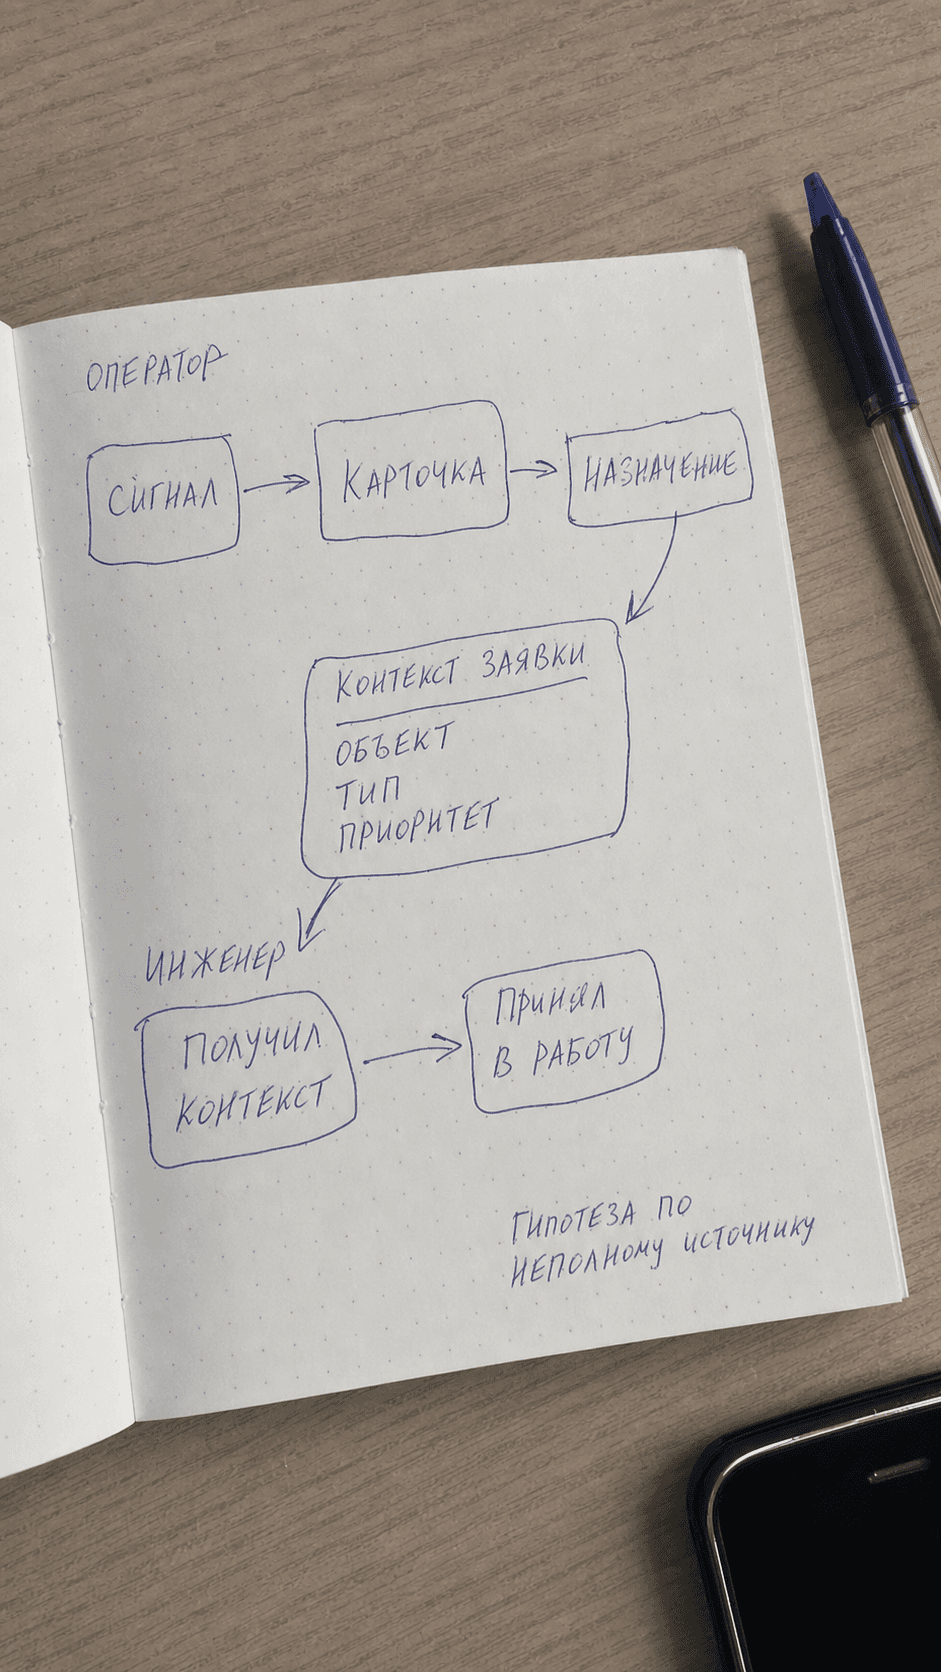 ОПЕРАТОР
СИГНАЛ
КАРТОЧКА
НАЗНАЧЕНИЕ
КОНТЕКСТ ЗАЯВКИ
ОБЪЕКТ
ТИП
ПРИОРИТЕТ
ИНЖЕНЕР
ПОЛУЧИЛ
КОНТЕКСТ
ПРИНЯЛ
В РАБОТУ
ГИПОТЕЗА ПО
НЕПОЛНОМУ ИСТОЧНИКУ